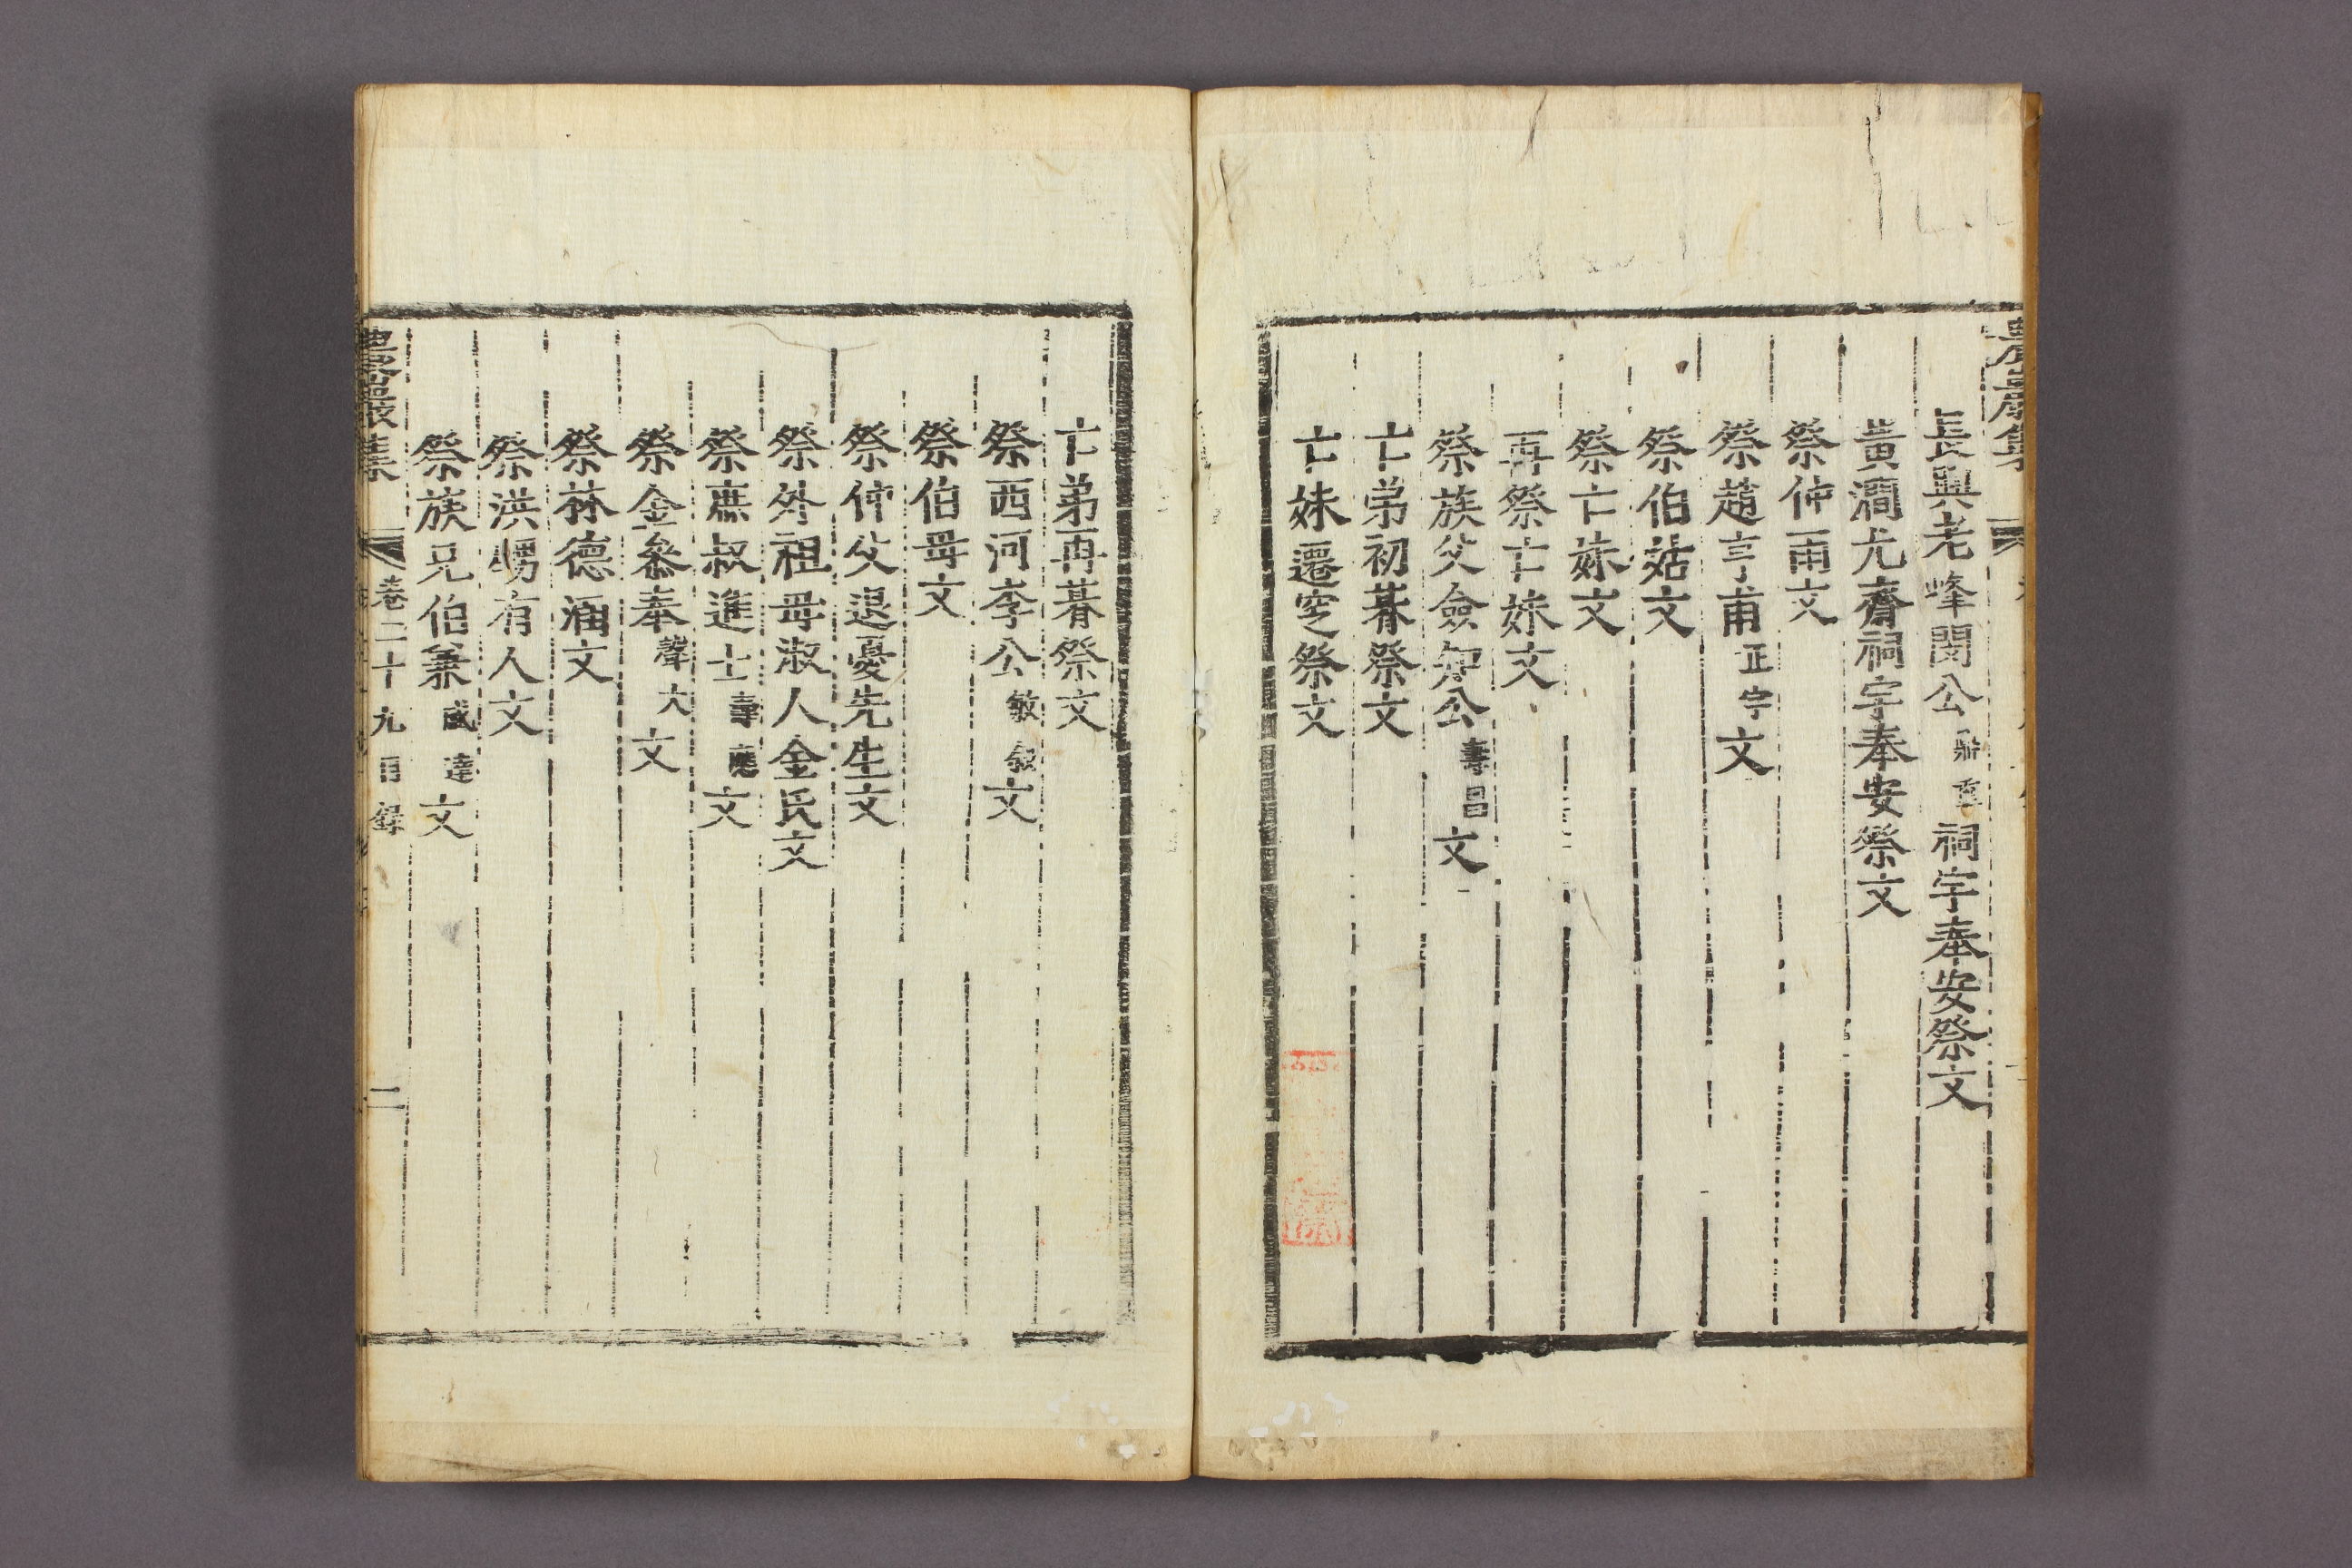 農巖集
長興老峰閔公鼎重祠宇奉安祭文
黃澗尤齋祠宇奉安祭文
祭仲雨文
祭趙亨甫正宇文
祭伯姑文
祭亡妹文
再祭亡妹文
祭族父僉知公壽昌文
亡弟初朞祭文
亡妹遷窆祭文
亡弟再朞祭文
祭西河李公敏敍文
祭伯母文
祭仲父退憂先生文
祭外祖母淑人金氏文
祭庶叔進士壽應文
祭金參奉聲大文
祭林德涵文
祭洪甥有人文
祭族兄伯兼盛達文
農巖集 卷二十九 目錄 二